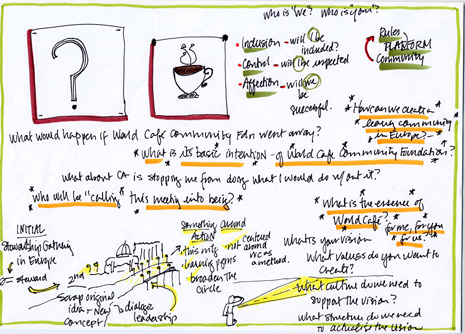 who is "we"? Who is "you"?
• Inclusion - will I be included?
• Control - will I be respected
• Affection - will we be successful.
Rules
PLATFORM
Community
* How can we create a
learning community
in Europe? *
What would happen if World Cafe Community Fdn went array?
* What is its basic intention - of World Cafe Community Foundation? *
What about CA is stopping me from doing what I would do w/out it?
* Who will be "calling" this meeting into being? *
* What is the essence of
World Cafe? *
for me, for you
for us? *
INITIAL
Stewardship Gathering
in Europe
= steward
2nd
scrap original
idea - New
concept
dialogic
leadership
Something around
ACTION
this only
having pgms
broaden the
circle
centered
not around
WC as
a method.
What's your vision
What values do you want to
create?
What culture do we need to
support the vision?
What structure do we need
to actualize the vision